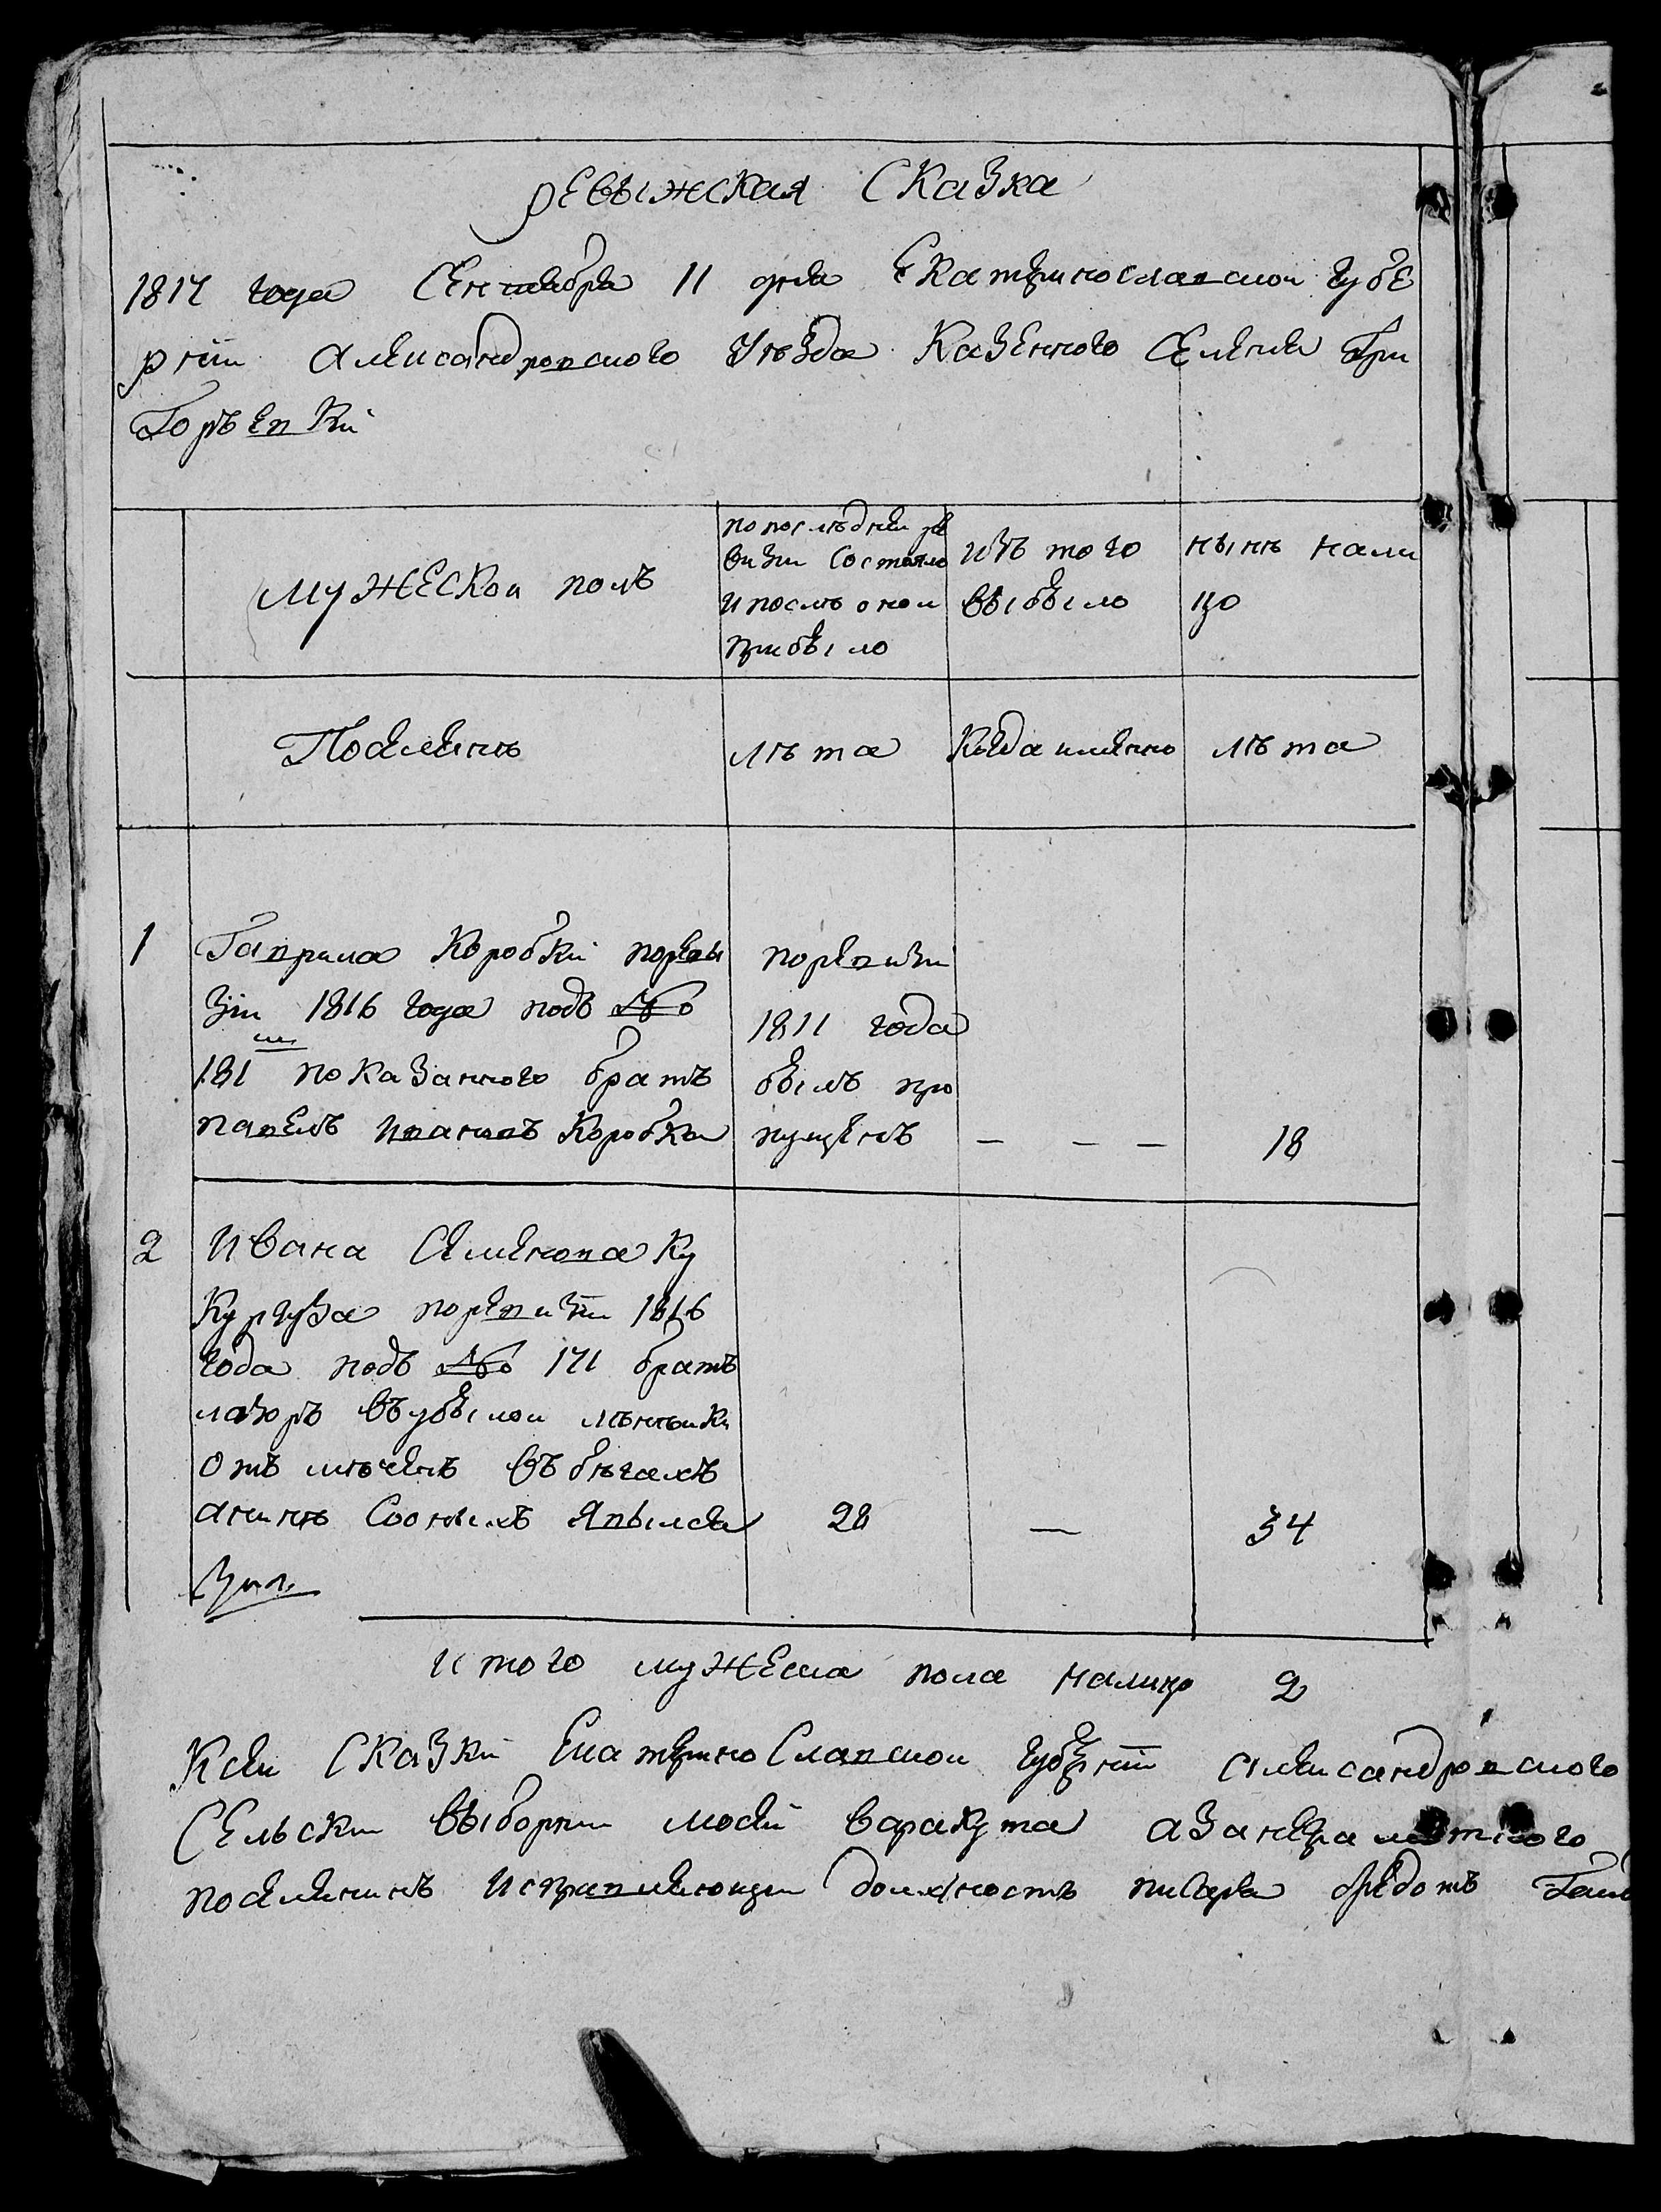 ревыжская сказка
1817 года Сентебра 11 дня Екатеринославской губе
рнїи Александровского уезда Казенного Селения Гри
горъевки
мужеской полъ
по последней ре
визии состояло
и после оной
прибыло
изъ того
выбыло
ныне нали
цо
Поселяне
лѣта
Когда именно
лѣта
1
Гаврила Коробки поревы
зїи 1816 года подъ №
181 показанного братъ
павелъ ивановъ Коробка
поревизи
1811 года
былъ про
пущенъ
— — —
18
2
Ивана Семенова Ку
Кургуза поревизїи 1816
года подъ № 171 братъ
лазоръ
отъ мѣченъ въ бѣгахъ
анинѣ Соонымъ явылся
28
—
34
итого мужеска пола налицо 2
Ксеи сказки Екатеринославской губернїи Александровского
Сельски выборни Мосѣй варакута азанеграмотного
поселенинъ исправляющи должность писаря Федотъ